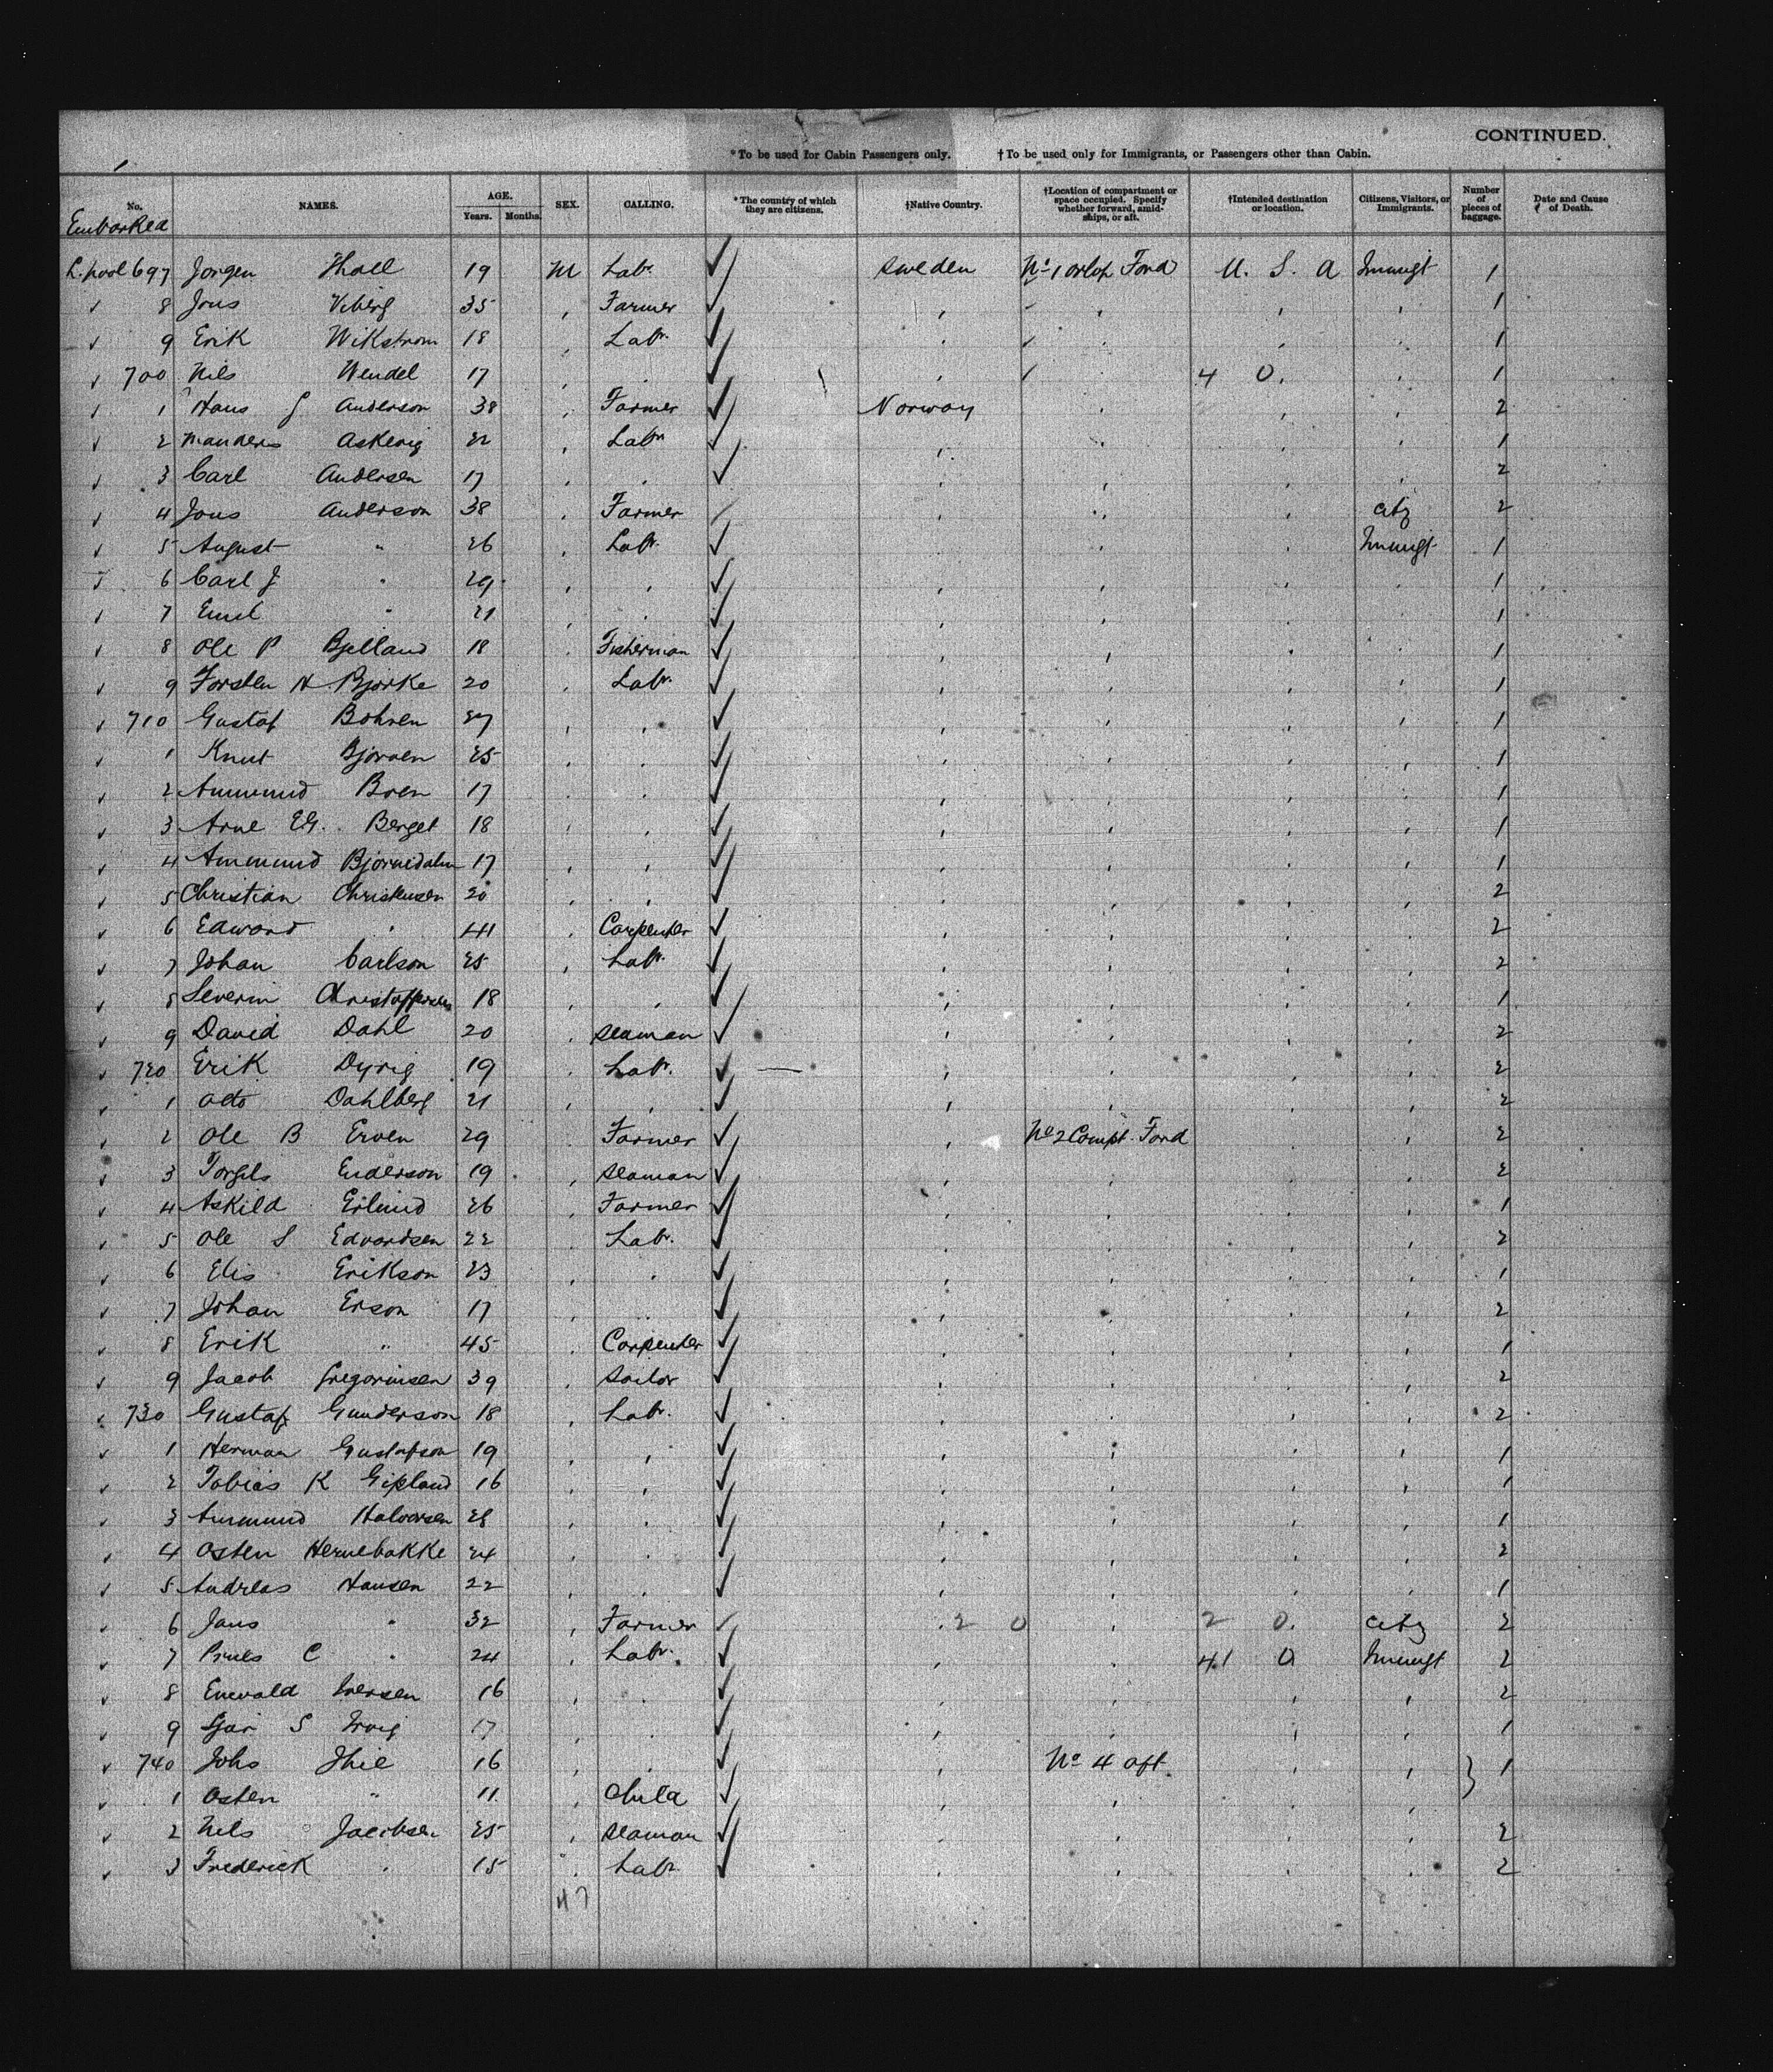 CONTINUED.
*To be used for Cabin Passengers only. †To be used only for Immigrants, or Passengers other than Cabin.
No. NAMES. AGE. Years. Months. SEX. CALLING. *The country of which they are citizens. †Native Country. †Location of compartment or space occupied. Specify whether forward, amidships, or aft. †Intended destination or location. Citizens, Visitors, or Immigrants. Number of pieces of baggage. Date and Cause of Death.
Embarked
L.pool 697 Jorgen 19 M Labr. Sweden No 1 orlop Forwd U. S. A Immigt 1
8 Jons Viberg 35 Farmer 1
9 Erik Wikstrom 18 Labr. 1
700 Nils Wendel 17 4 0. 1
1 Hans J Anderson 38 Farmer Norway 2
2 22 Labr 1
3 Carl Andersen 17 2
4 Jons Anderson 38 Farmer citz 2
5 August " 26 Labr. Immigt 1
6 Carl J " 29 1
7 Emil " 21 1
8 Ole P Bjelland 18 Fisherman 1
9 Torsten N. Bjorke 20 Labr. 1
710 Gustaf Bohren 27 1
1 Knut Bjoroen 25 1
2 Ammund Broen 17 1
3 Arne EG. Berget 18 1
4 Ammund Bjornedalen 17 1
5 Christian Christensen 20 2
6 Edward " 41 Carpenter 2
7 Johan Carlson 25 Labr. 2
8 Severin Christoffersen 18 1
9 David Dahl 20 Seaman 2
720 Erik Dyvig 19 Labr. 2
1 Otto Dahlberg 21 2
2 Ole B Eroen 29 Farmer No 2 Compt. Forwd 2
3 Torgils Enderson 19 Seaman 2
4 Askild Erlund 26 Farmer 1
5 Ole S Edvardsen 22 Labr. 2
6 Elis Erikson 23 1
7 Johan Erson 17 2
8 Erik " 45 Carpenter 1
9 Jacob Gregoriusen 39 Sailor 2
730 Gustaf Gunderson 18 Labr. 2
1 Herman Gustafson 19 1
2 Tobias K Gipland 16 1
3 Ammund Halvorsen 28 1
4 Osten Hernebakke 24 2
5 Andreas Hansen 22 1
6 Jans " 32 Farmer 2 0 2 0. citz 2
7 C " 24 Labr. 41 0 Immigt 2
8 Enevald Iversen 16 2
9 S 17 1
740 Johs 16 No 4 aft. 1
1 Osten " 11 Child
2 Nils Jacobsen 25 Seaman 2
3 Frederick " 15 Labr 2
47